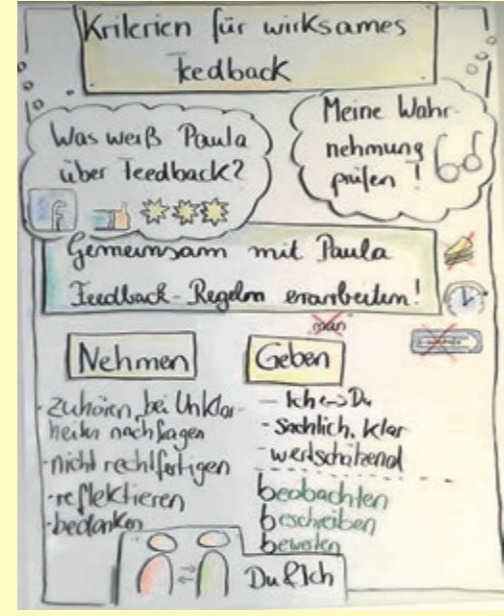 Kriterien für wirksames
Feedback
Was weiß Paula
über Feedback?
Meine Wahr-
nehmung
prüfen!
f
Gemeinsam mit Paula
Feedback-Regeln erarbeiten!
man
Nehmen
Geben
· zuhören, bei Unklar-
heiten nachfragen
· nicht rechtfertigen
· reflektieren
· bedanken
- Ich → Du
- Sachlich, klar
- wertschätzend
beobachten
beschreiben
bewerten
Du & Ich